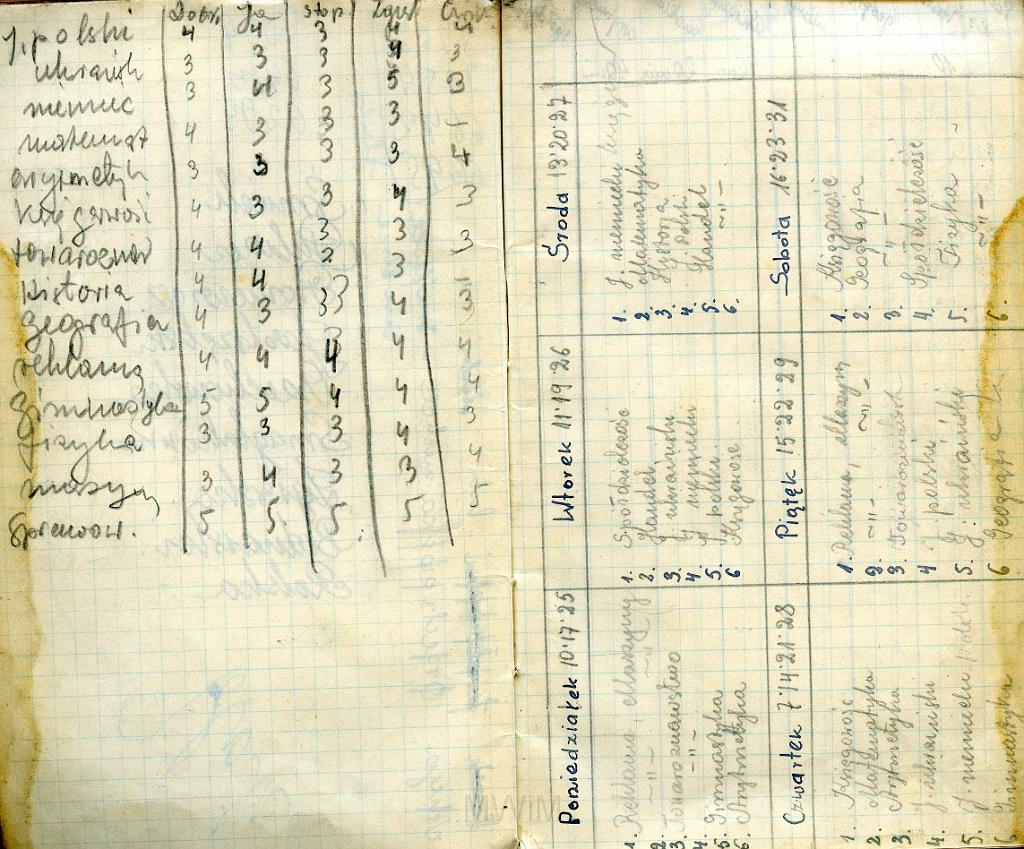 Ja stop
j. polski 4 4 3 4 4
ukraińsk 3 3 3 4 3
niemiec 3 4 3 5 3
matemat 4 3 3 3
arytmetyk 3 3 3 3
Księgowość 4 3 3 4 3
towarozna 4 4 3 3 3
Historia 4 4 2 3
Geografia 4 3 3 4 3
reklama 4 4 4 4
Gimnastyka 5 5 4 4 4
fizyka 3 3 3 4 3
maszyn 3 4 3 3 4
Sprawow. 5 5 5 5 5
Poniedziałek 10·17·25
1. Reklama, Maszyny
2. –"–
3. Towaroznawstwo
4. –"–
5. Gimnastyka
6. Arytmetyka
Wtorek 11·19·26
1. Spółdzielczość
2. Handel
3. J. ukraiński
4. J. niemiecki
5. J. polski
6. Księgowość
Środa 13·20·27
1. J. niemiecki
2. Matematyka
3. Historja
4. J. Polski
5. Handel
6. –"–
Czwartek 7·14·21·28
1. Księgowość
2. Matematyka
3. Arytmetyka
4. J. ukraiński
5. J. niemiecki polski
6. Gimnastyka
Piątek 15·22·29
1. Reklama, Maszyny
2. –"–
3. Towaroznawstwo
4. J. polski
5. J. ukraiński
6. Geografia
Sobota 16·23·31
1. Księgowość
2. Geografia
3. –"–
4. Spółdzielczość
5. Fizyka
6. –"–